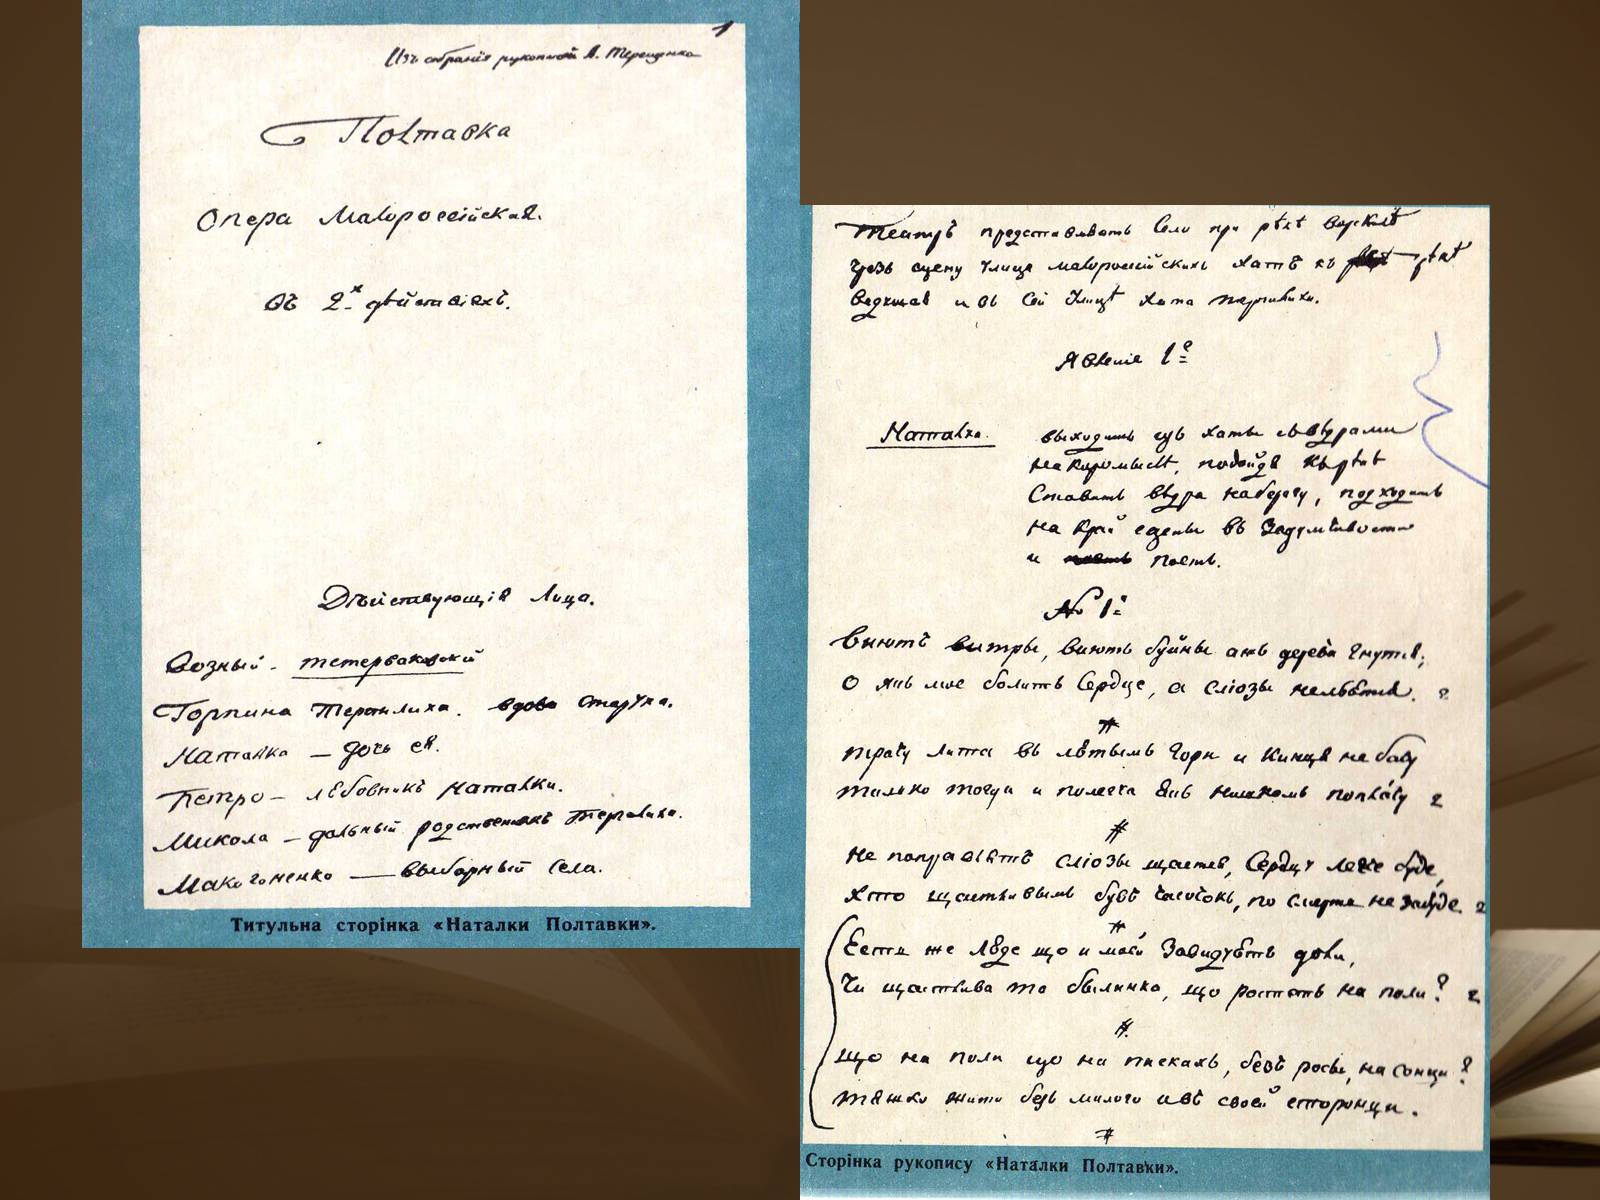 1
Изъ собранія рукописей А. Терещенка
Полтавка
Опера Малороссійская.
въ 2х дѣйствіяхъ.
Дѣйствующія Лица.
Возный - тетерваковскій
Горпина Терпилиха. вдова старуха.
Наталка — дочь ея.
Петро — любовникъ Наталки.
Микола — дальный родственникъ Терпилихи.
Макогоненко — выборный села.
Титульна сторінка «Наталки Полтавки».
Театръ представляетъ Село при рѣкѣ Ворсклѣ
чрезъ сцену улица малороссійскихъ хатъ къ рѣкѣ
ведущая и въ сей улицѣ хата терпилихи.
Явленіе 1е
Наталка. выходитъ изъ хаты съ вѣдрами
на коромыслѣ, подойдя къ рѣкѣ
Ставитъ вѣдра на берегу, подходитъ
на край сцены въ задумчивости
и поетъ.
№ 1й
Віютъ витры, віютъ буйны ажъ дерева гнутця;
О якъ мое болитъ Сердце, а сліозы нельютця. 2
#
трачу лита въ лютымъ гори и Кинця не бачу
тилько тогда и полегча якъ нишкомъ поплачу 2
#
Не поправлятъ сліозы щастья, Сердцу легче буде,
Хто щастливымъ бувъ часочокъ, по смерти не забуде. 2
#
Есть же люде що и моей завидуютъ доли,
Чи щастлива та былинка, що ростетъ на поли? 2
#
Що на поли що на пискахъ, безъ росы, на сонци?
тяжко жити безъ милого и въ своей сторонци.
#
Сторінка рукопису «Наталки Полтавки».